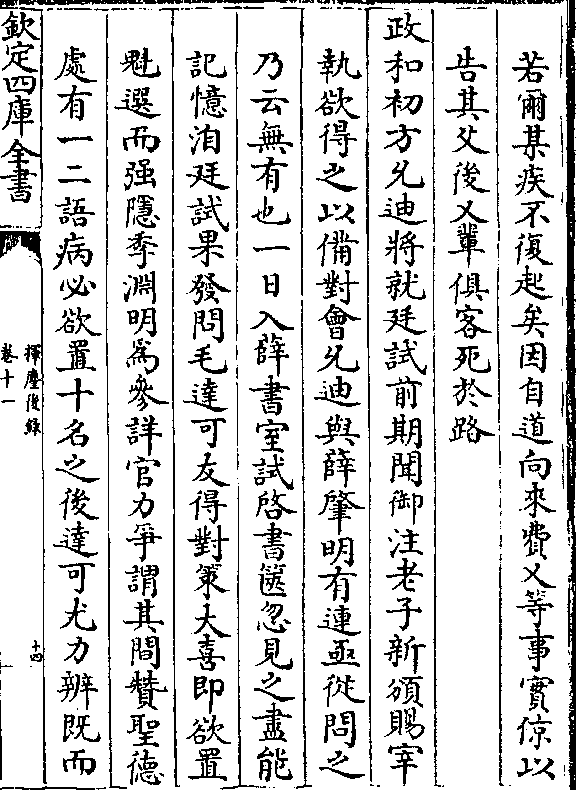 若爾某疾不復起矣因自道向來費乂等事實倞以
告其父後乂輩俱客死於路
政和初方允迪將就廷試前期聞御注老子新頒賜宰
執欲得之以備對會允迪與薛肇明有連亟從問之
乃云無有也一日入薛書室試啓書篋忽見之盡能
記憶洎廷試果發問毛達可友得對策大喜即欲置
魁選而强隱季淵明爲參詳官力爭謂其間贊聖德
處有一二語病必欲置十名之後達可尤力辨既而
欽定四庫全書
揮麈後録
卷十一
十四